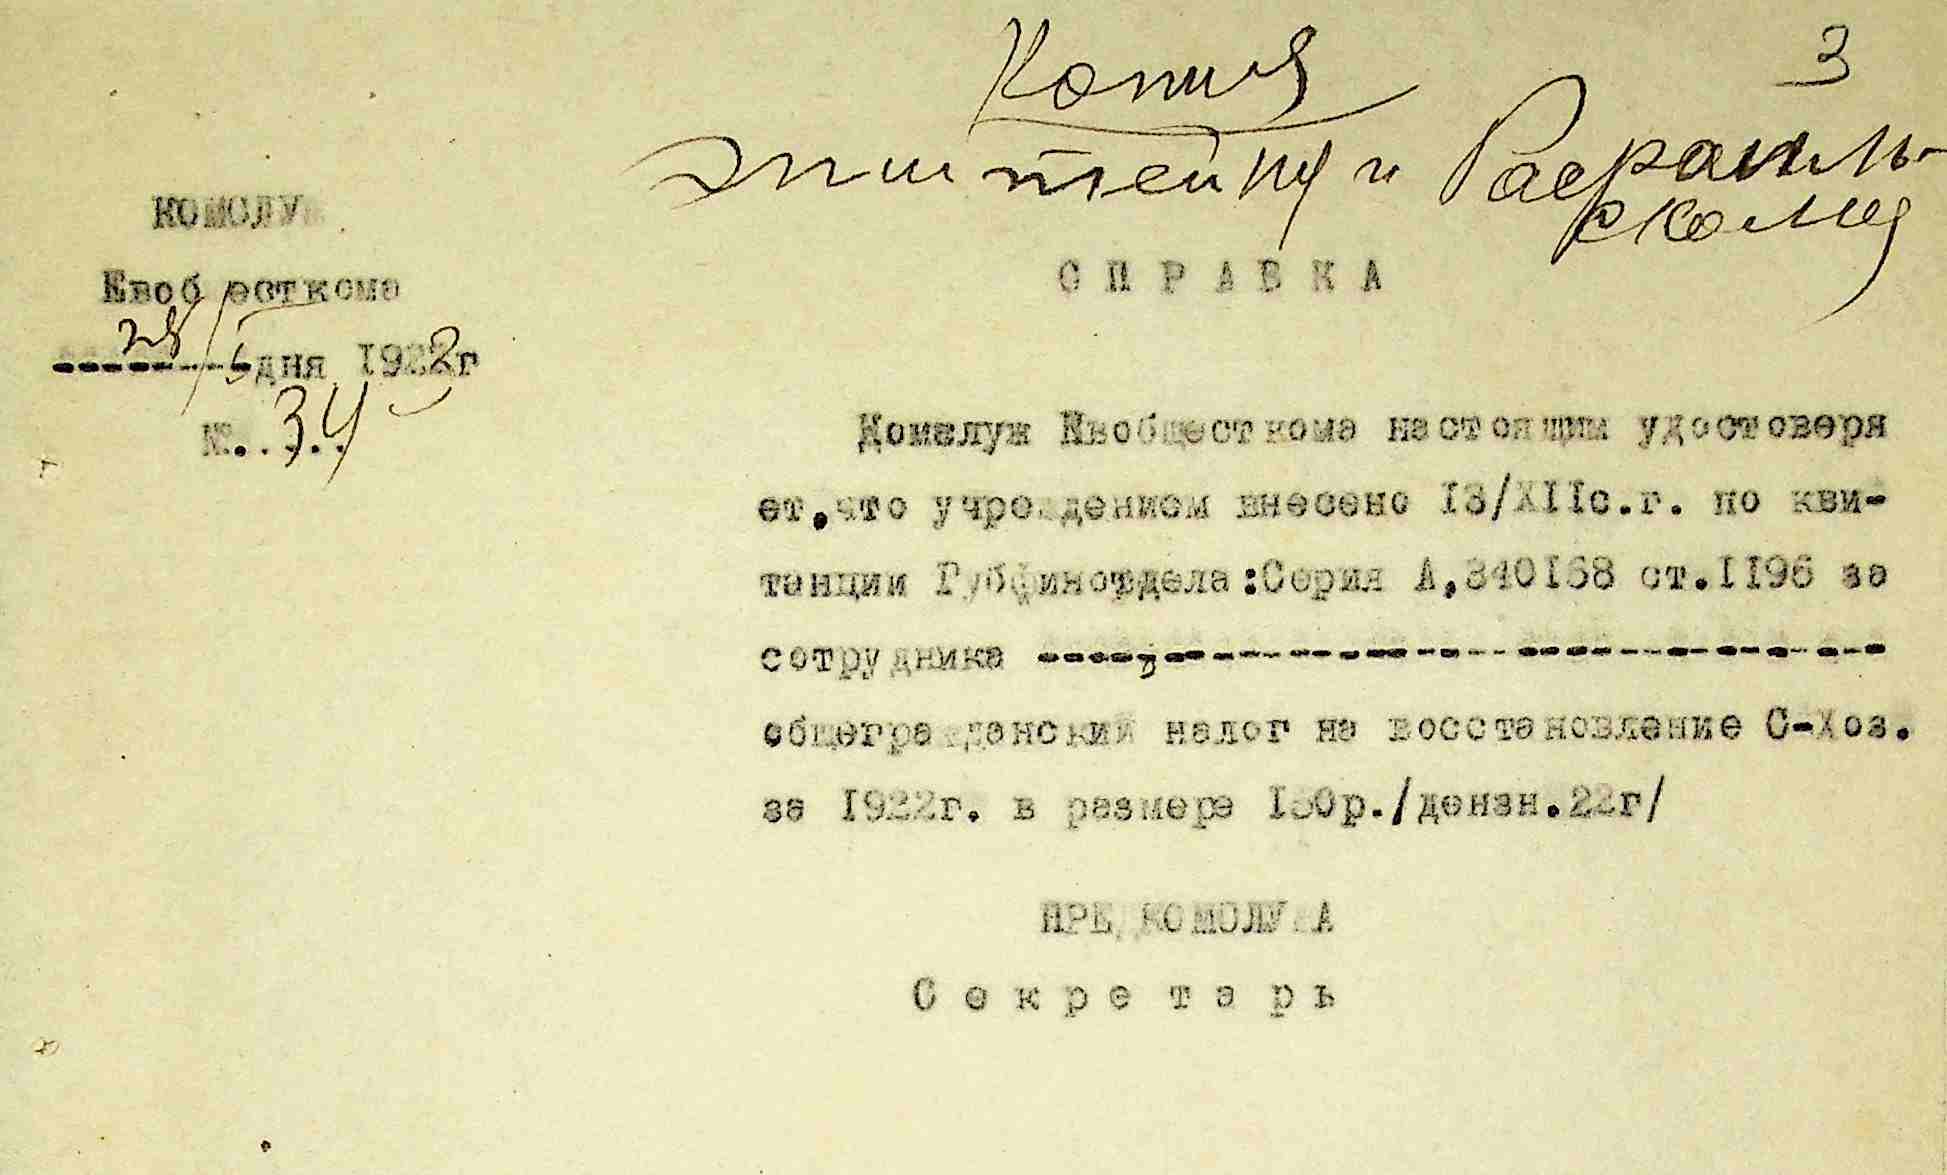 3
Копия
Эпштейну и Рафаиль-
скому
КОМСЛУЖ
Евобщесткома
28/I дня 1923г
№...34
СПРАВКА
Комслуж Евобщесткома настоящим удостоверя
ет, что учреждением внесено 13/XIIс.г. по кви-
танции Губфинотдела:Серия А,340168 ст.1196 за
сотрудника ----------------------------------
общегражданский налог на восстановление С-Хоз.
за 1922г. в размере 150р./дензн.22г/
ПРЕДКОМСЛУЖА
Секретарь